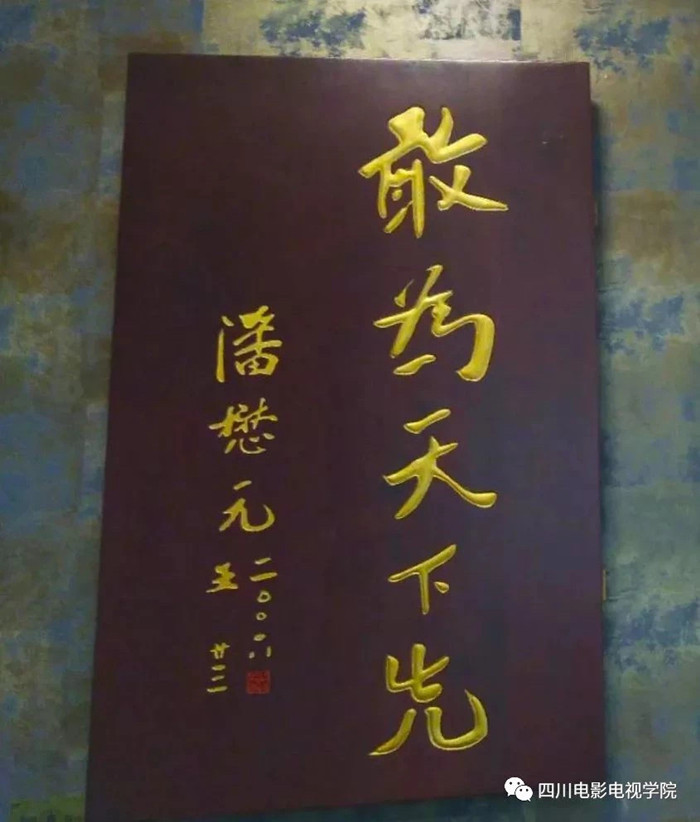 敢为天下先
潘懋元
二〇〇六
五 廿二
四川电影电视学院